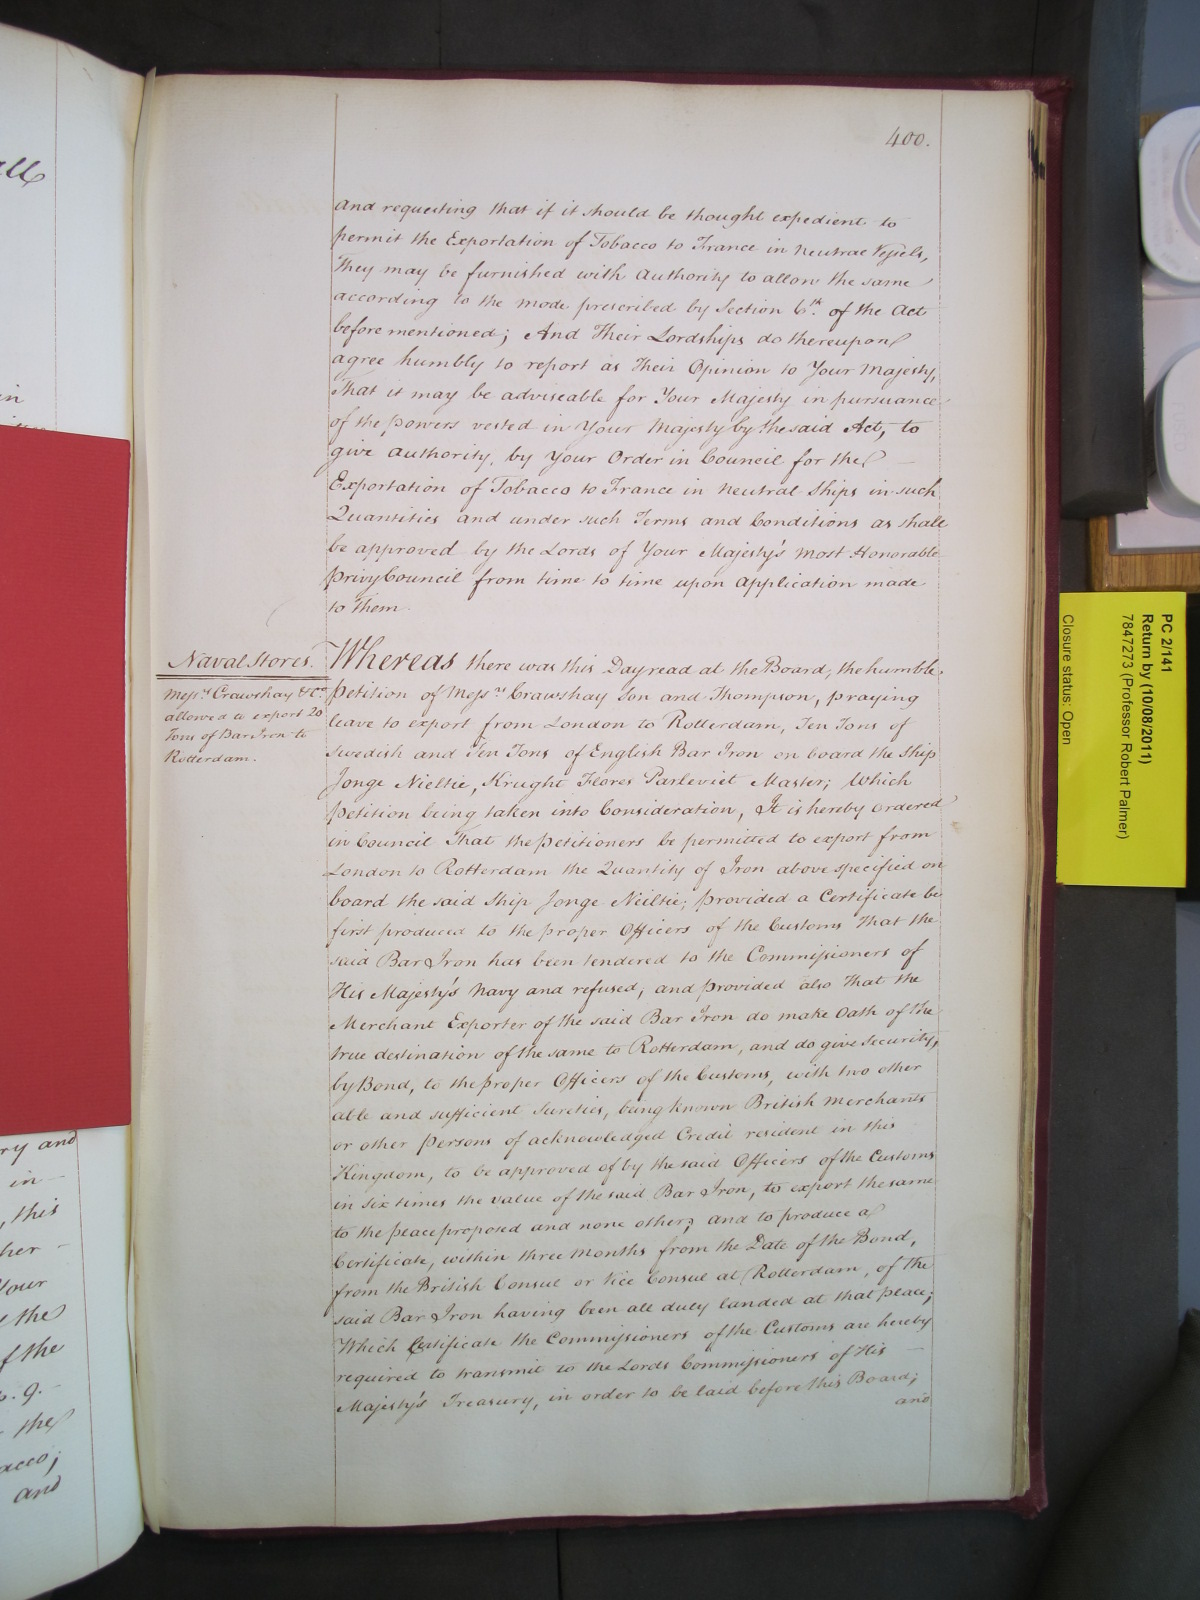 400.
and requesting that if it should be thought expedient to
permit the Exportation of Tobacco to France in Neutral Vessels,
They may be furnished with Authority to allow the same
according to the mode prescribed by Section 6th. of the Act
before mentioned; And Their Lordships do thereupon
agree humbly to report as Their Opinion to Your Majesty,
That it may be adviseable for Your Majesty in pursuance
of the powers vested in Your Majesty by the said Act, to
give Authority, by Your Order in Council for the
Exportation of Tobacco to France in Neutral Ships in such
Quantities and under such Terms and Conditions as shall
be approved by the Lords of Your Majesty's most Honorable
Privy Council from time to time upon Application made
to Them.
Naval Stores.
Messrs Crawshay &Co.
allowed to export 20
Tons of Bar Iron to
Rotterdam.
Whereas there was this Day read at the Board, the humble
Petition of Messrs Crawshay Son and Thompson, praying
leave to export from London to Rotterdam, Ten Tons of
Swedish and Ten Tons of English Bar Iron on board the Ship
Jonge Nieltie, Krught Flores Parleviet Master; Which
Petition being taken into Consideration, It is hereby ordered
in Council That the Petitioners be permitted to export from
London to Rotterdam the Quantity of Iron above specified on
board the said Ship Jonge Neiltie; provided a Certificate be
first produced to the proper Officers of the Customs That the
said Bar Iron has been tendered to the Commissioners of
His Majesty's Navy and refused; and provided also That the
Merchant Exporter of the said Bar Iron do make Oath of the
true destination of the same to Rotterdam, and do give Security,
by Bond, to the proper Officers of the Customs, with two other
able and sufficient Sureties, being known British Merchants
or other Persons of acknowledged Credit resident in this
Kingdom, to be approved of by the said Officers of the Customs
in Six times the value of the said Bar Iron, to export the same
to the place proposed and none other; and to produce a
Certificate, within three Months from the Date of the Bond,
from the British Consul or Vice Consul at Rotterdam, of the
said Bar Iron having been all duly landed at that place;
Which Certificate the Commissioners of the Customs are hereby
required to transmit to the Lords Commissioners of His
Majesty's Treasury, in order to be laid before this Board;
and
ry and
in
, this
her
Your
the
f the
p. 9.
the
acco;
and
PC 2/141
Return by (10/08/2011)
7847273 (Professor Robert Palmer)
Closure status: Open